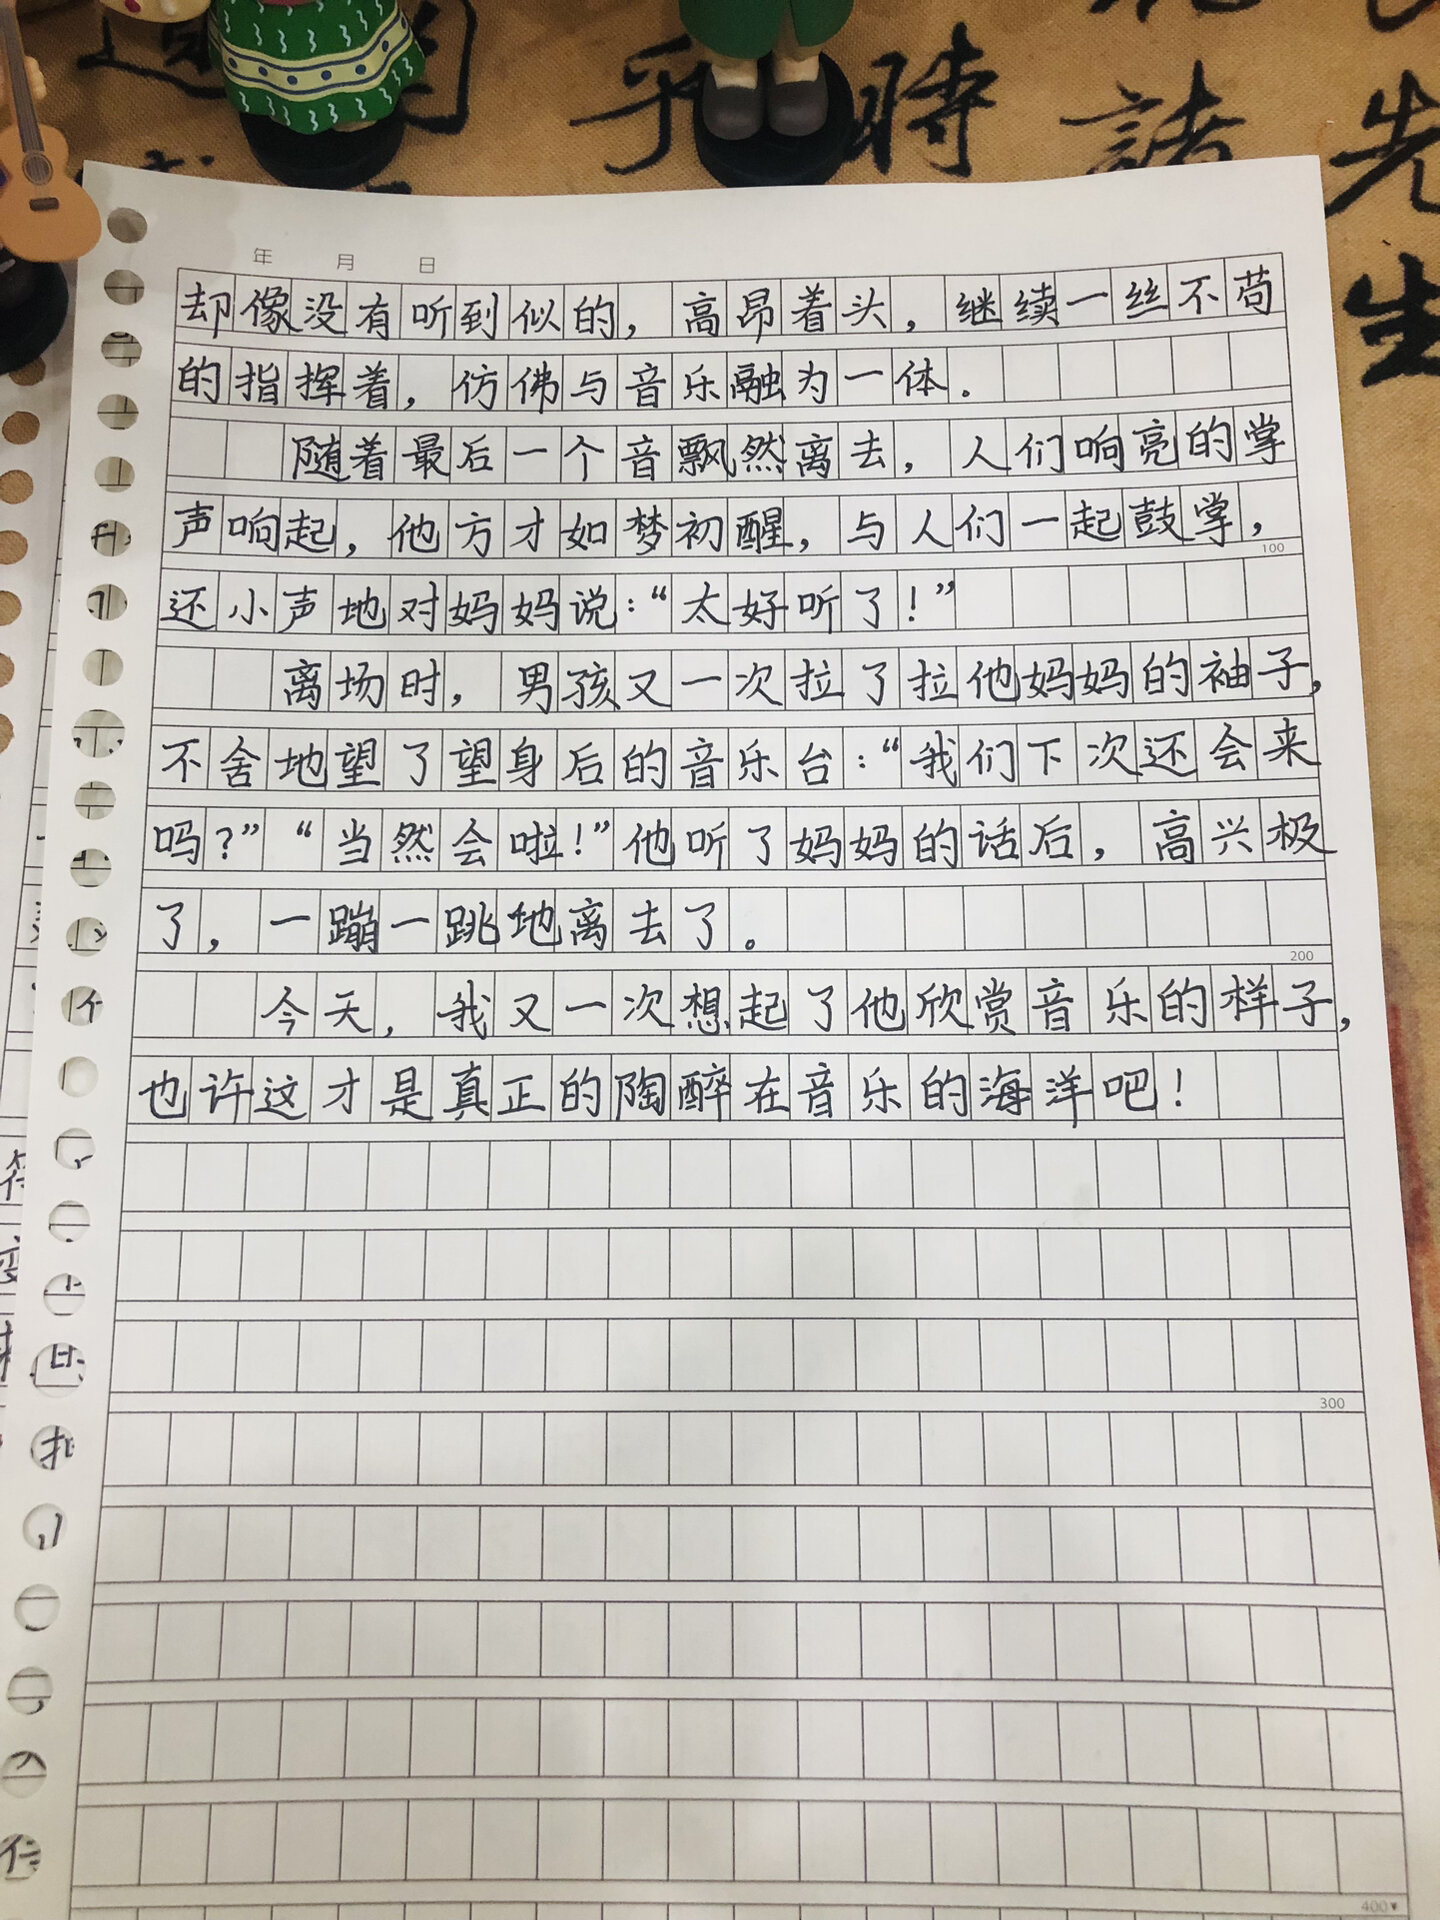 時
諸
先
生
年 月 日
却像没有听到似的，高昂着头，继续一丝不苟
的指挥着，仿佛与音乐融为一体.
随着最后一个音飘然离去，人们响亮的掌
声响起，他方才如梦初醒，与人们一起鼓掌，
100
还小声地对妈妈说：“太好听了！”
离场时，男孩又一次拉了拉他妈妈的袖子，
不舍地望了望身后的音乐台：“我们下次还会来
吗？”“当然会啦！”他听了妈妈的话后，高兴极
了，一蹦一跳地离去了。
200
今天，我又一次想起了他欣赏音乐的样子，
也许这才是真正的陶醉在音乐的海洋吧！
300
400